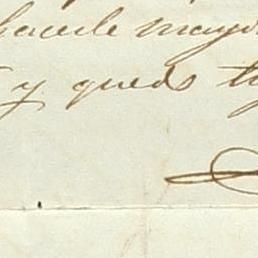 hacerle mayor
y quedo tu